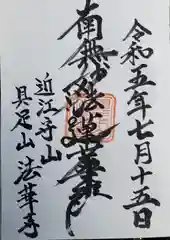 令和五年七月十五日
南無妙法蓮華経
近江寺山
具足山 法華寺